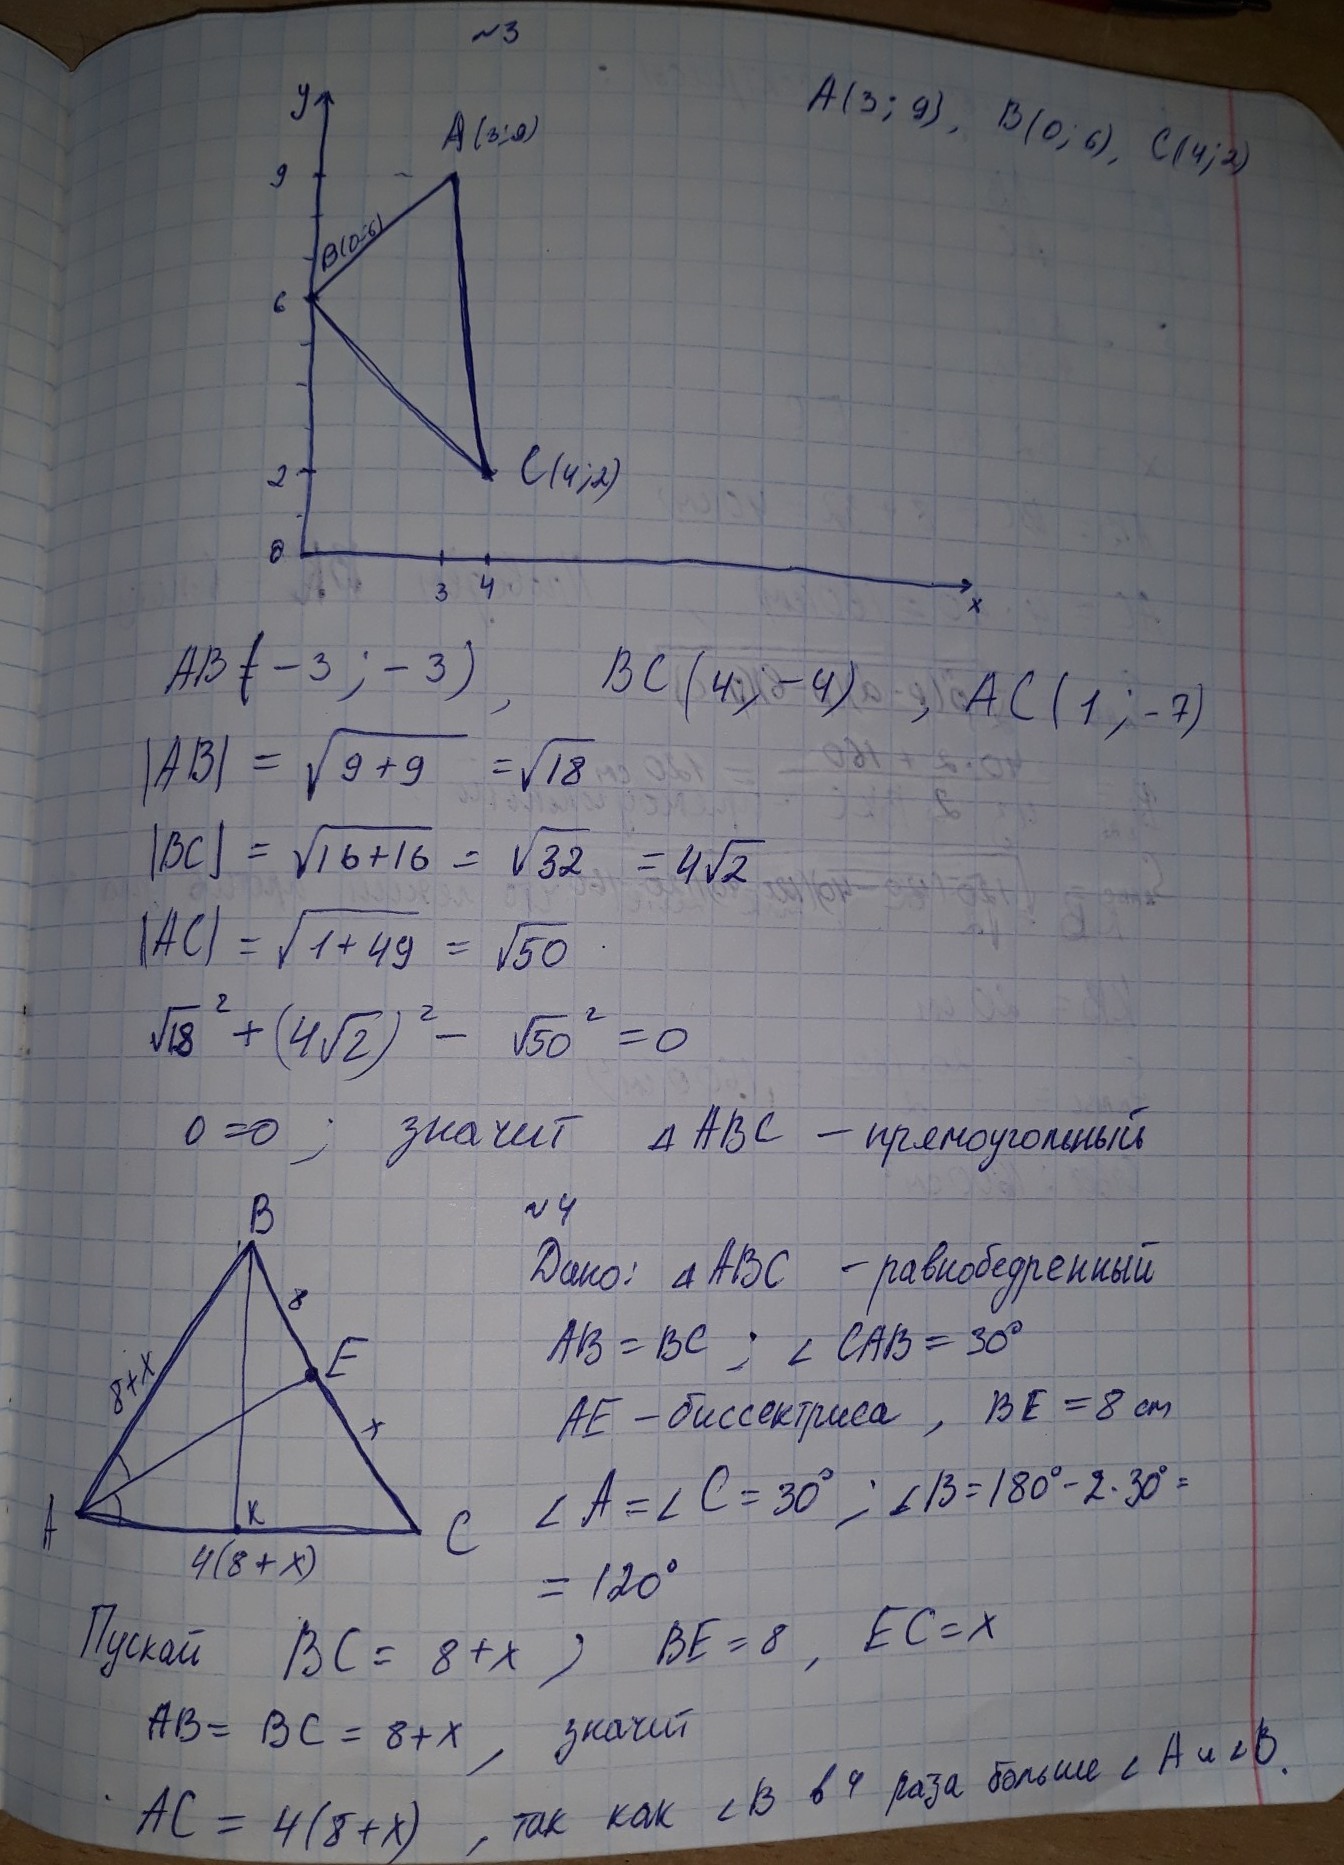 ~3
A(3; 9), B(0; 6), C(4; 2)
y
A(3; 9)
9
B(0; 6)
6
C(4; 2)
2
0
3 4 x
AB(-3; -3), BC(4; -4), AC(1; -7)
|AB| = √9+9 = √18
|BC| = √16+16 = √32 = 4√2
|AC| = √1+49 = √50
√18² + (4√2)² - √50² = 0
0=0; значит △ABC - прямоугольный
~4
B
8
E
8+x
x
A
K
C
4(8+x)
Дано: △ABC - равнобедренный
AB = BC; ∠CAB = 30°
AE - биссектриса, BE = 8 см
∠A = ∠C = 30°; ∠B = 180° - 2·30° =
= 120°
Пускай BC = 8+x; BE = 8, EC = x
AB = BC = 8+x, значит
AC = 4(8+x), так как ∠B в 4 раза больше ∠A и ∠B.